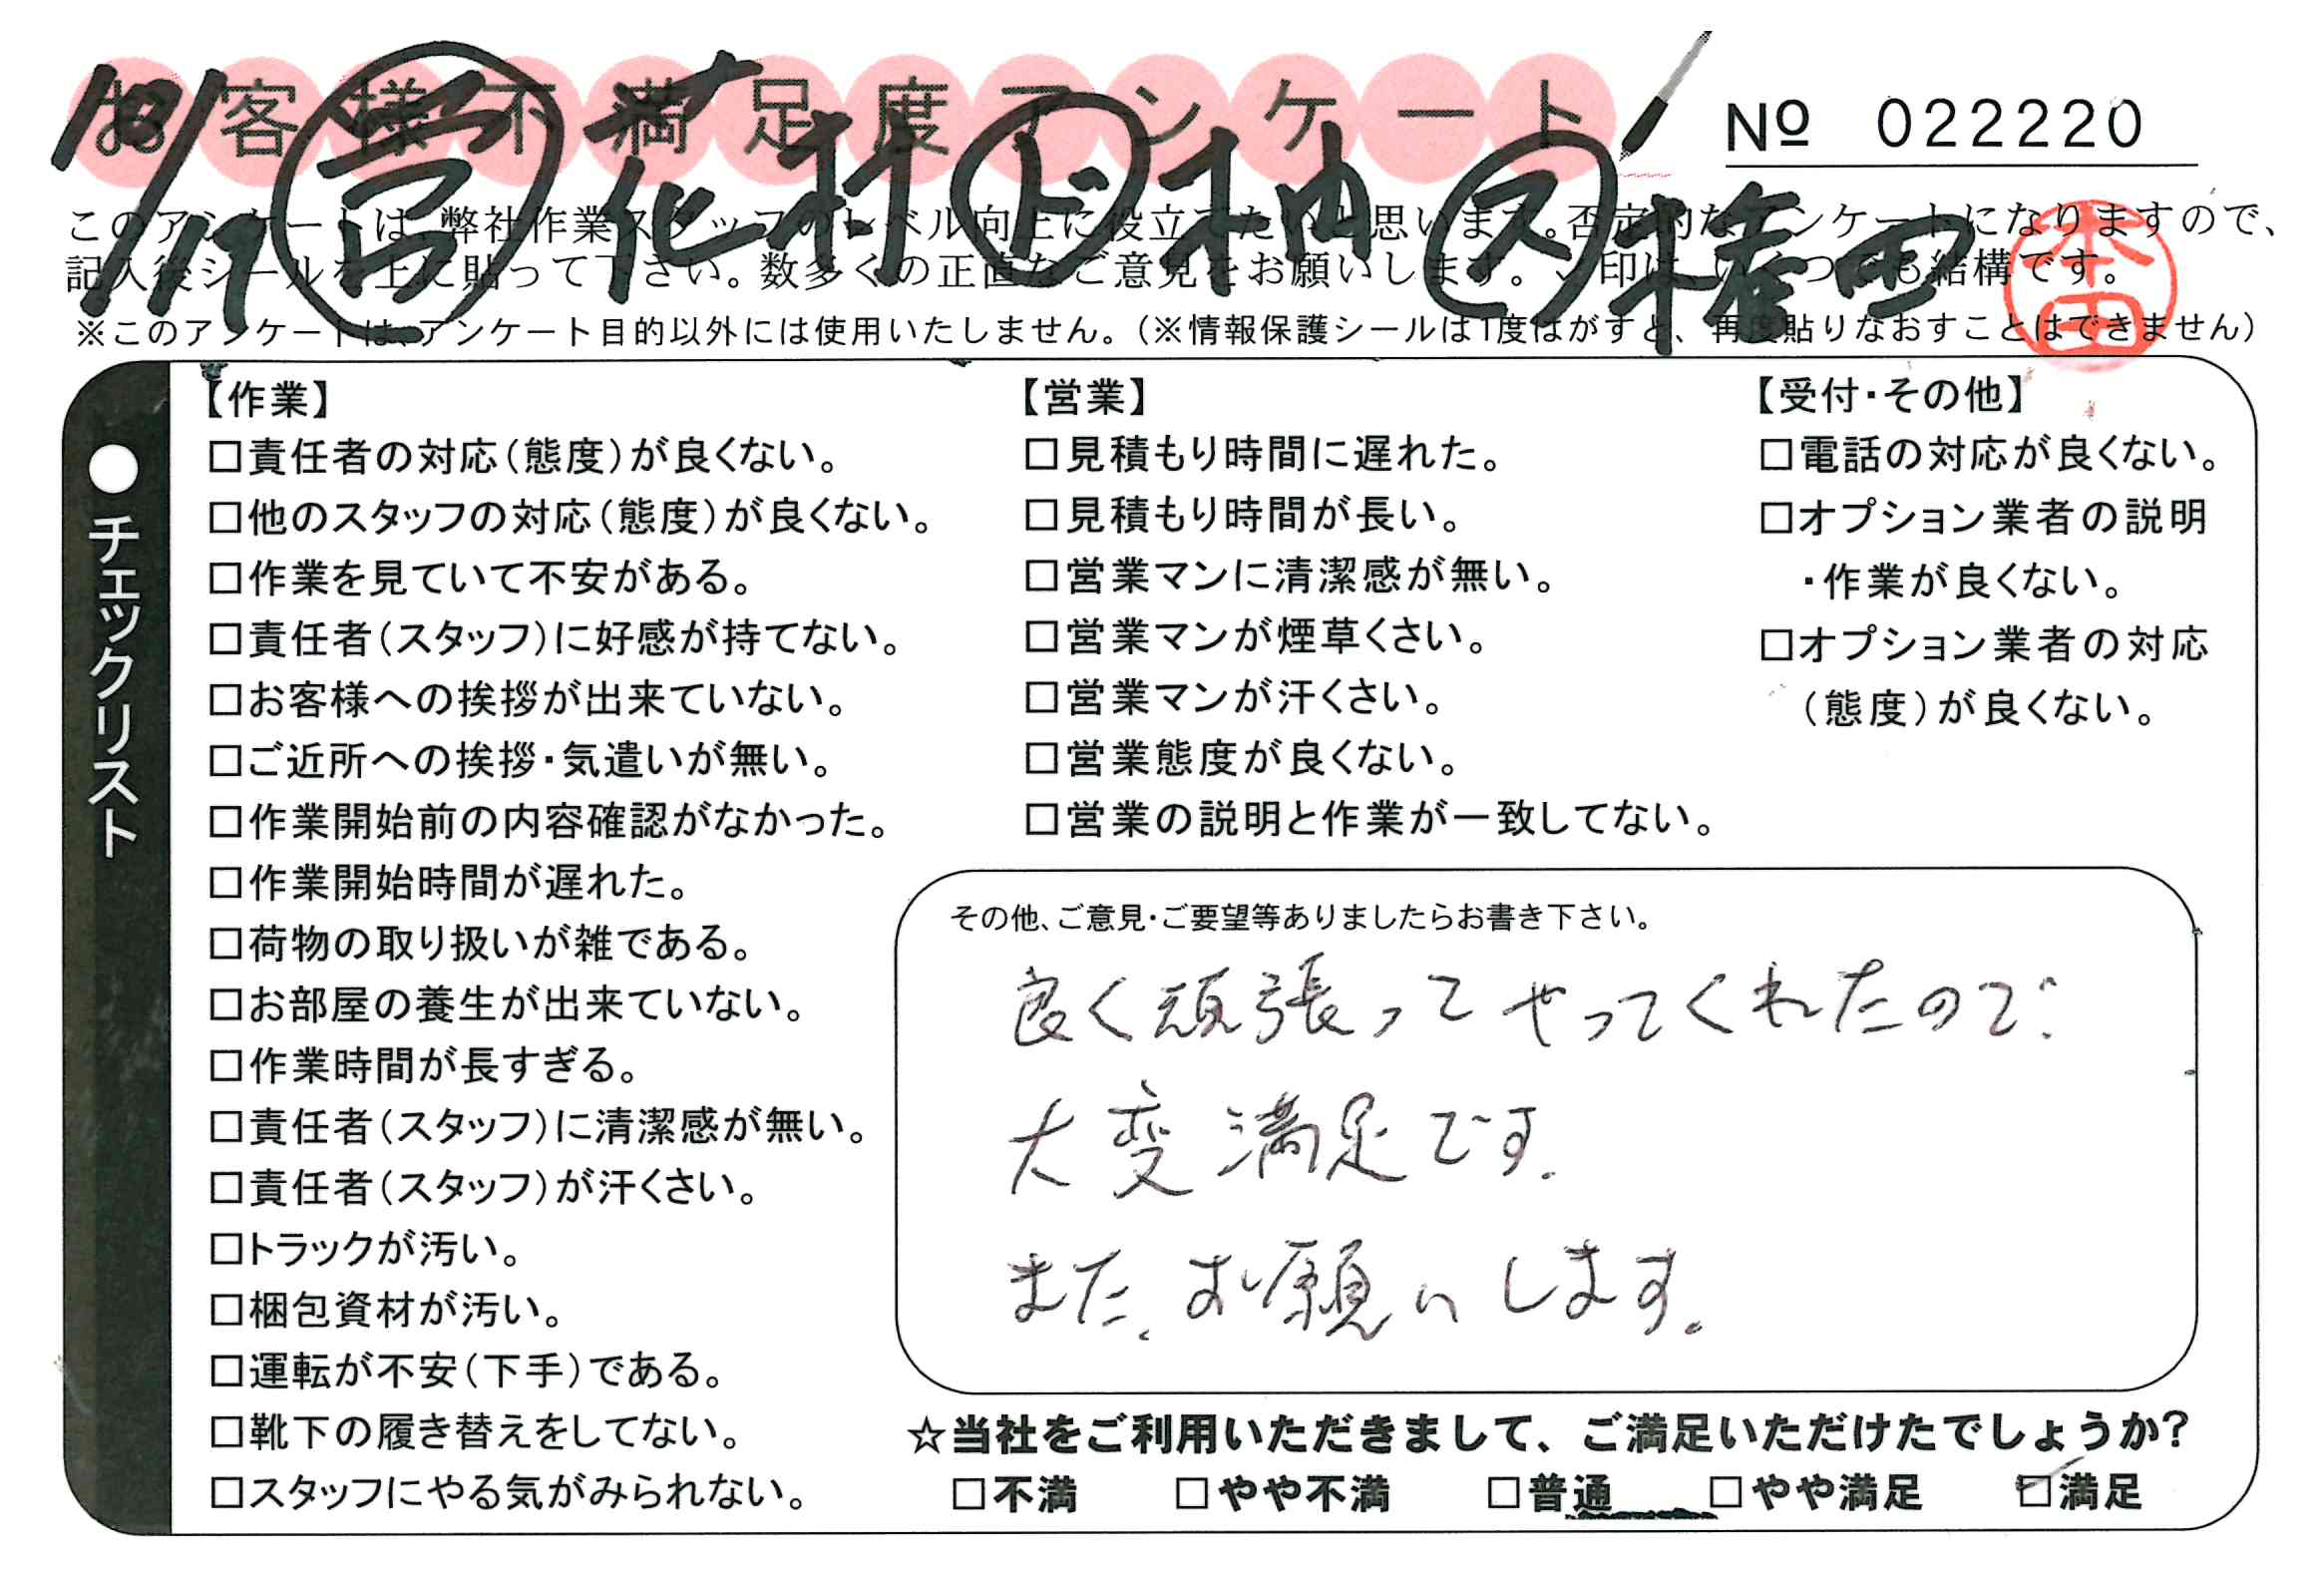 お客様不満足度アンケート
Nº 022220
10/19 営 花村 ド 柚 ス 権田
本田
このアンケートは、弊社作業スタッフのレベル向上に役立てたいと思います。否定的なアンケートになりますので、
記入後シールを上に貼って下さい。数多くの正直なご意見をお願いします。✓印は、いくつでも結構です。
※このアンケートは、アンケート目的以外には使用いたしません。(※情報保護シールは1度はがすと、再度貼りなおすことはできません)
●チェックリスト
【作業】
□責任者の対応(態度)が良くない。
□他のスタッフの対応(態度)が良くない。
□作業を見ていて不安がある。
□責任者(スタッフ)に好感が持てない。
□お客様への挨拶が出来ていない。
□ご近所への挨拶・気遣いが無い。
□作業開始前の内容確認がなかった。
□作業開始時間が遅れた。
□荷物の取り扱いが雑である。
□お部屋の養生が出来ていない。
□作業時間が長すぎる。
□責任者(スタッフ)に清潔感が無い。
□責任者(スタッフ)が汗くさい。
□トラックが汚い。
□梱包資材が汚い。
□運転が不安(下手)である。
□靴下の履き替えをしてない。
□スタッフにやる気がみられない。
【営業】
□見積もり時間に遅れた。
□見積もり時間が長い。
□営業マンに清潔感が無い。
□営業マンが煙草くさい。
□営業マンが汗くさい。
□営業態度が良くない。
□営業の説明と作業が一致してない。
【受付・その他】
□電話の対応が良くない。
□オプション業者の説明
・作業が良くない。
□オプション業者の対応
(態度)が良くない。
その他、ご意見・ご要望等ありましたらお書き下さい。
良く頑張ってやってくれたので、
大変満足です。
また、お願いします。
☆当社をご利用いただきまして、ご満足いただけたでしょうか?
□不満 □やや不満 □普通 □やや満足 ☑満足